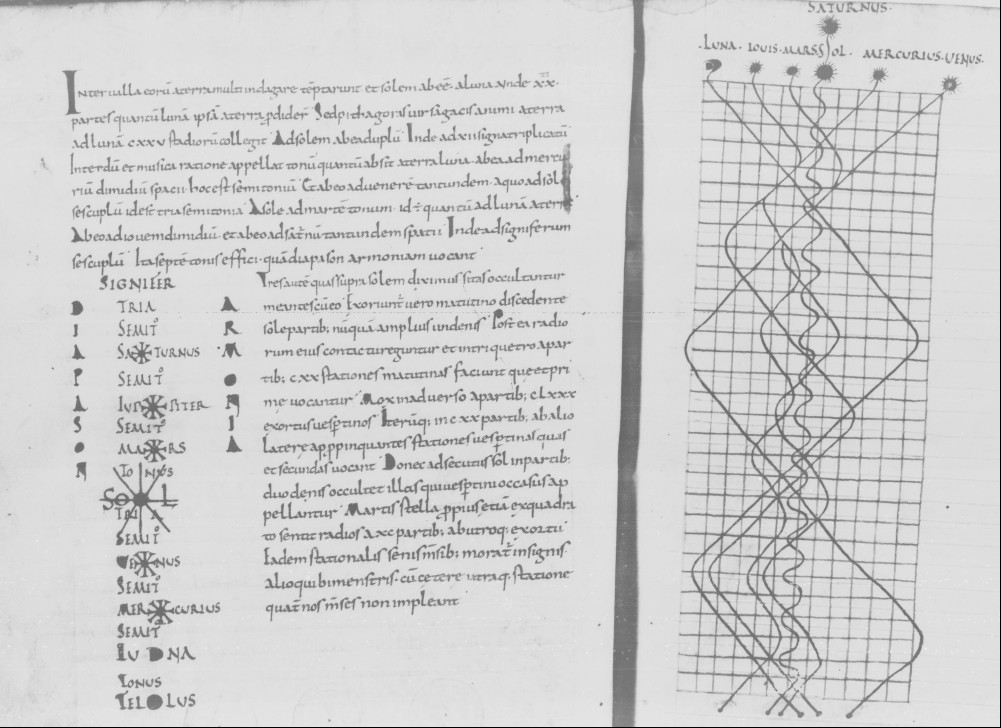 Interualla eorū aterra multi indagare tēptarunt et solem abeē alunā unde xx
partes quantū lunā ipsā aterra p̄dider̄ Sed pithagoras uir sagacis animi aterra
ad lunā cxxv stadiorū collegit Ad solem abea duplū Inde ad xii signa triplicatū
Interdū et musica ratione appellat tonū quantū absit aterra luna abea ad mercu
riū dimidiū spacii hoc est semitoniū Et abeo ad uenerē tantundem aquo ad solē
sescuplū id est tria semitonia Asole ad martē tonum id ē quantū ad lunā aterra
Abeo ad iouem dimidiū et abeo ad sat̄nū tantundem spatii Inde ad signiferum
sescuplū Ita septē tonis effici quā diapason armoniam uocant
SIGNIFER
TRIA
SEMIT
SATURNUS
SEMIT
IUPPITER
SEMIT
MARS
TONUS
SOL
TRIA
SEMIT
UENUS
SEMIT
MERCURIUS
SEMIT
LUNA
TONUS
TELLUS
DIAPASON
ARMONIA
Tres autē quas supra solem diximus sitas occultantur
meantes cū eo Exoriunt̄ uero matutino discedente
sole partib; nūquā amplius undenis Post ea radio
rum eius contactu reguntur et intriquetro a par
tib; cxx stationes matutinas faciunt que et pri
me uocantur Mox in aduerso a partib; clxxx
exortus uesp̄tinos Iterūq; in cxx partib; ab alio
latere app̄pinquantes stationes uesp̄tinas quas
et secundas uocant Donec adsecutus sōl in partib;
duodenis occultet illas qui uesp̄tini occasus ap
pellantur Martis stella p̄pius etiā ex quadra
to sentit radios axc partib; ab utroq; exortu
Eadem stationalis senis m̄sib; morat̄ in signis
alioqui bimenstris cū cetere utraq; statione
quat̄nos m̄ses non impleant
SATURNUS
LUNA IOUIS MARS SOL MERCURIUS UENUS